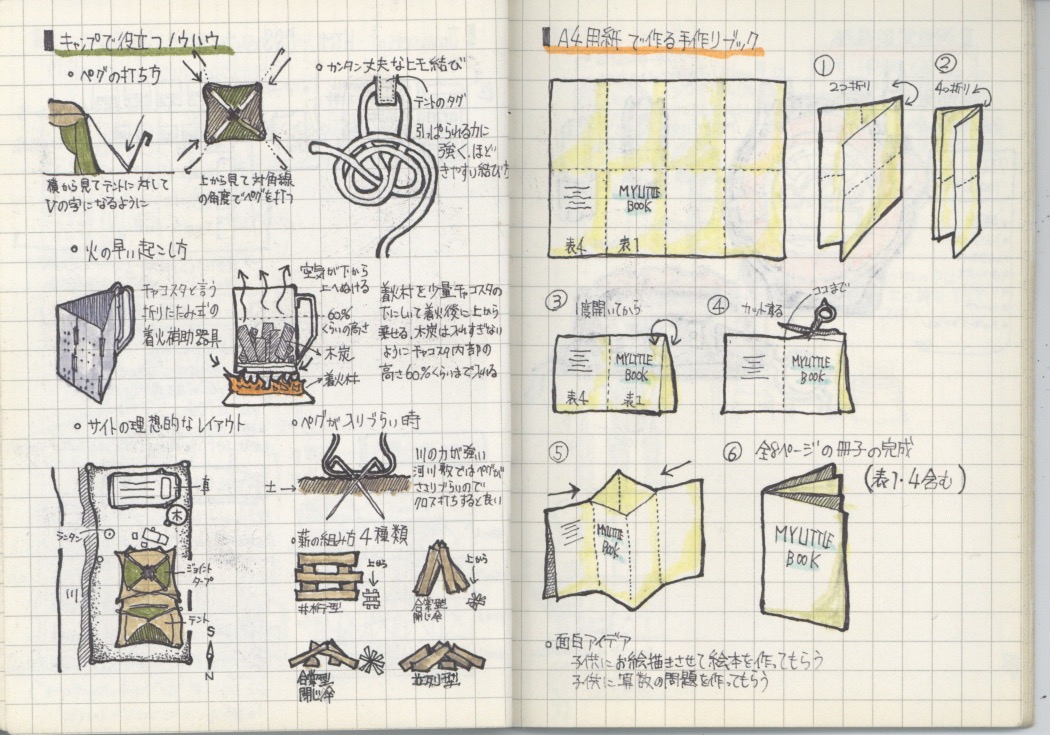 キャンプで役立つノウハウ
・ペグの打ち方
横から見てテントに対して
Vの字になるように
上から見て対角線
の角度でペグを打つ
・カンタン丈夫なヒモ結び
テントのタグ
引っぱられる力に
強く、ほど
きやすい結び方
・火の早い起こし方
チャコスタと言う
折りたたみ式の
着火補助器具
空気が下から
上へぬける
60%
くらいの高さ
木炭
着火材
着火材を少量チャコスタの
下にしいて着火後に上から
乗せる。木炭は入れすぎない
ようにチャコスタ内部の
高さ60%くらいまで入れる
・サイトの理想的なレイアウト
車
木
ランタン
川
ジョイント
タープ
テント
S
N
・ペグが入りづらい時
土
川の力が強い
河川敷ではペグが
ささりづらいので
クロス打ちすると良い
・薪の組み方4種類
上から
井桁型
上から
合掌型
閉じ傘
合掌型
開じ傘
並列型
A4用紙で作る手作りブック
MY LITTLE
BOOK
表4
表1
①
2つ折り
②
4つ折り
③
1度開いてから
MY LITTLE
BOOK
表4
表1
④
カットする
ココまで
MY LITTLE
BOOK
⑤
MY LITTLE
BOOK
⑥
全8ページの冊子の完成
(表1・4含む)
MY LITTLE
BOOK
・面白アイデア
子供にお絵描きさせて絵本を作ってもらう
子供に算数の問題を作ってもらう